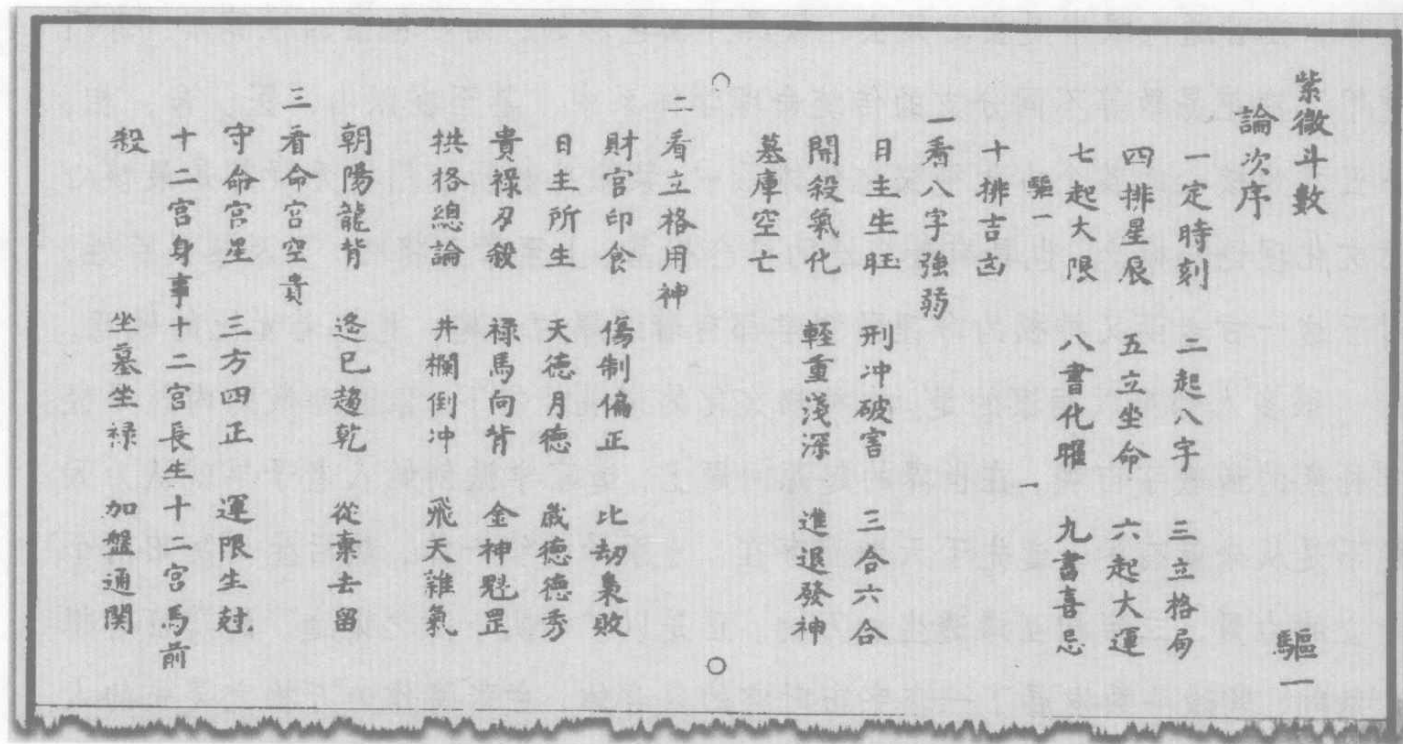 紫微斗數 驅一
論次序
一定時刻 二起八字 三立格局
四排星辰 五立坐命 六起大運
七起大限 八書化曜 九書喜忌
驅一 一
十排吉凶
一看八字強弱
日生生旺 刑冲破害 三合六合
開殺氣化 輕重淺深 進退發神
墓庫空亡
二看立格用神
財官印食 傷制偏正 比劫梟敗
日生所生 天德月德 歲德德秀
貴祿刃殺 祿馬向背 金神魁罡
拱格總論 井欄倒冲 飛天雜氣
朝陽龍背 逐巳趨乾 從棄去留
三看命宮空貴
守命宮星 三方四正 運限生尅
十二宮身事 十二宮長生 十二宮馬前
殺 坐墓坐祿 加盤通関